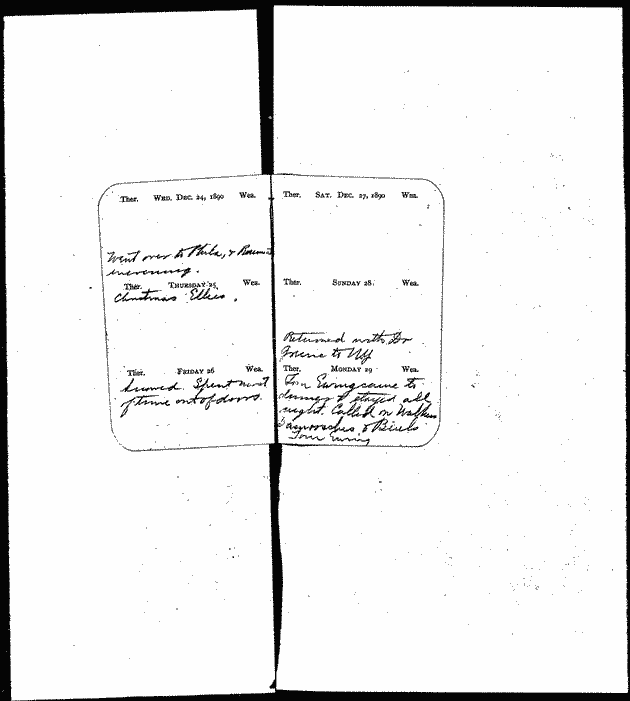 Ther. WED. DEC. 24, 1890 Wea.
Went over to Phila, &
evening.
Ther. THURSDAY 25. Wea.
Christmas Ellies.
Ther. FRIDAY 26 Wea.
Snowed. Spent most
of time out of doors.
Ther. SAT. DEC. 27, 1890 Wea.
Ther. SUNDAY 28. Wea.
Returned with Dr
to NY
Ther. MONDAY 29 Wea.
Tom Ewing came to
dinner & stayed all
night. Called on
&
Tom Ewing